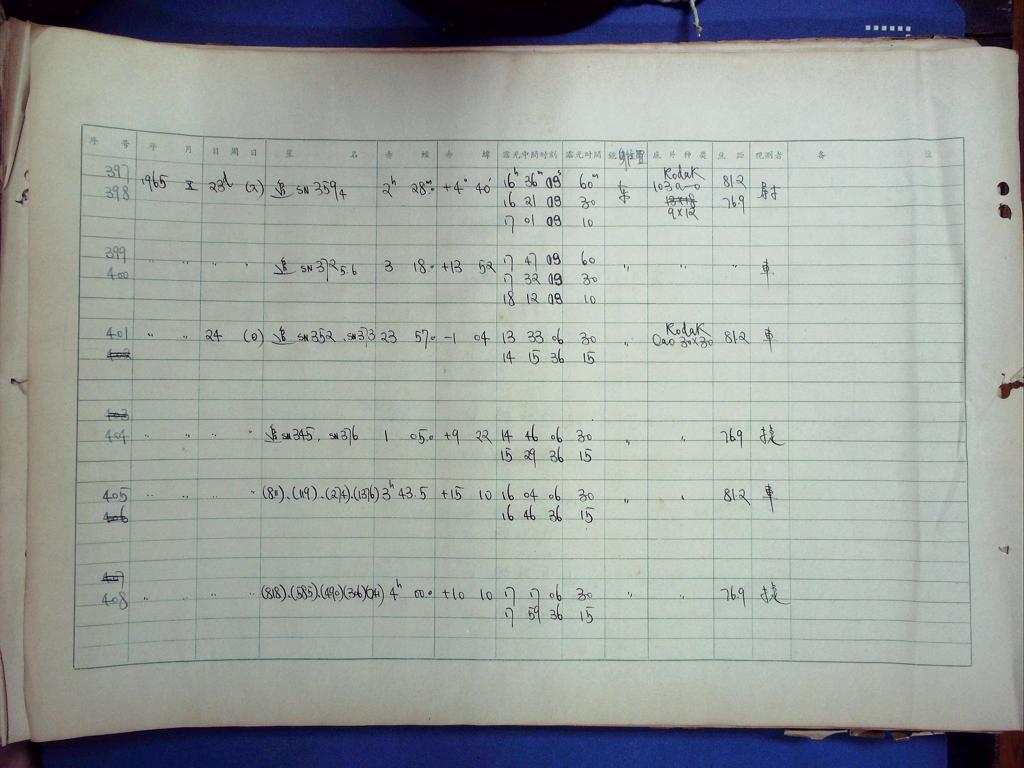 序号 年 月 日 周日 星 名 赤 经 赤 纬 露光中间时刻 露光时间 镜身位置 底片种类 焦距 观测者 备 注
397 1965 X 23d (2) SN 3594 2h 28m +4° 40' 16h 36m 09s 60m 东 Kodak 81.2 
398 16 21 09 30 103a-0 76.9
17 01 09 10 9×12
399 " " " " SN 372 5.6 3 18.0 +13 52 17 47 09 60 " " " 車
400 17 32 09 30
18 12 09 10
401 " " 24 (0) SN352 . SN373 23 57.0 -1 04 13 33 06 30 " Kodak 81.2 車
402 14 15 36 15 0a0 30×30
403
404 " " " " SN345, SN376 1 05.0 +9 22 14 46 06 30 " " 76.9
15 29 36 15
405 " " " " (80).(119).(274).(1376) 3h 43.5 +15 10 16 04 06 30 " " 81.2 車
406 16 46 36 15
407
408 " " " " (818).(585).(490) 4h 00.0 +10 10 17 17 06 30 " " 76.9
17 59 36 15